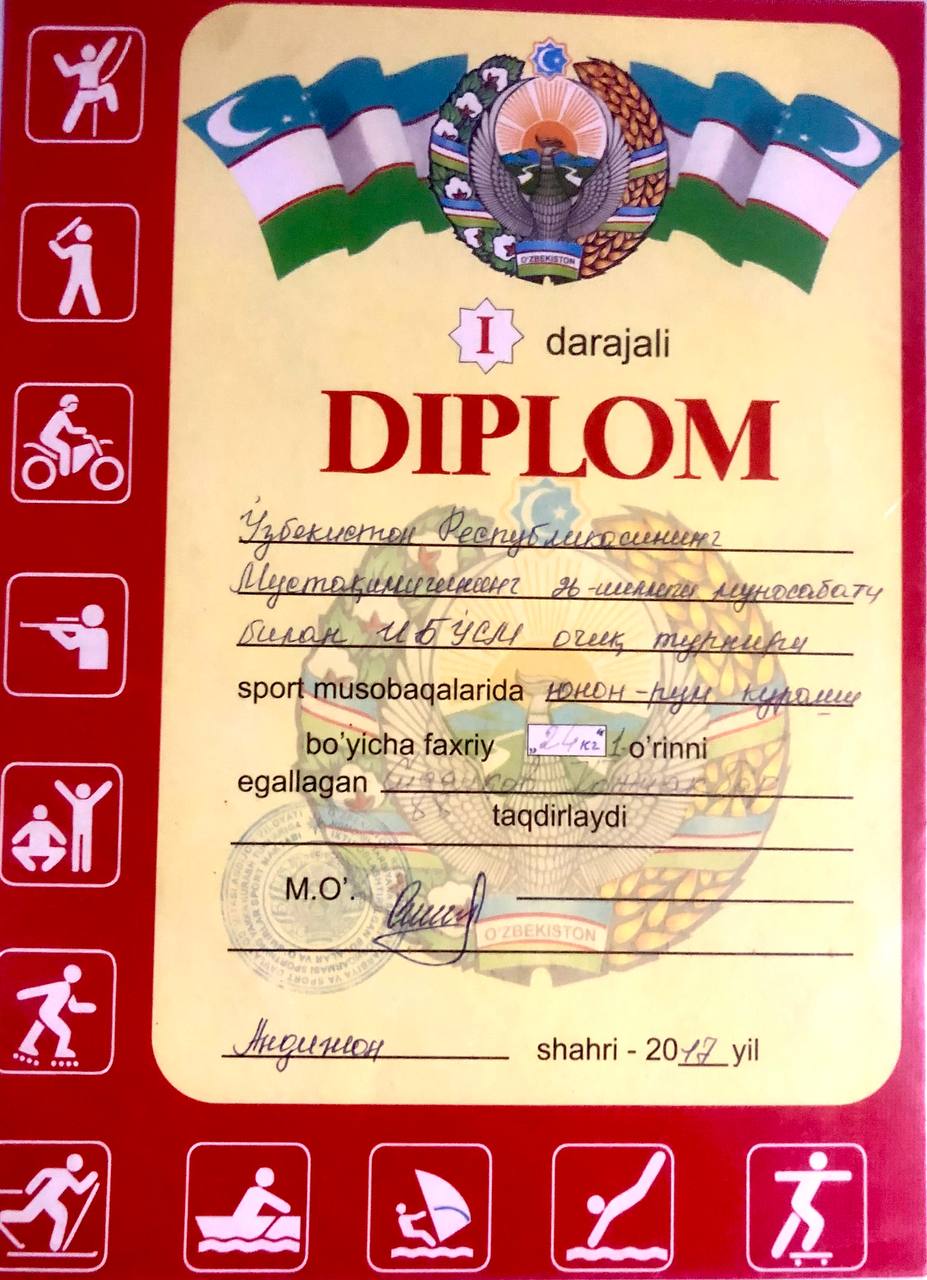 O'ZBEKISTON
I darajali
DIPLOM
Ўзбекистон Республикасининг
Мустақиллигининг 26-йиллиги муносабати
билан ИБЎСМ очиқ турнири
sport musobaqalarida юнон-рум кураши
bo'yicha faxriy „24 кг“ 1-o'rinni
egallagan
taqdirlaydi
M.O'.
O'ZBEKISTON
Андижон shahri - 2017 yil